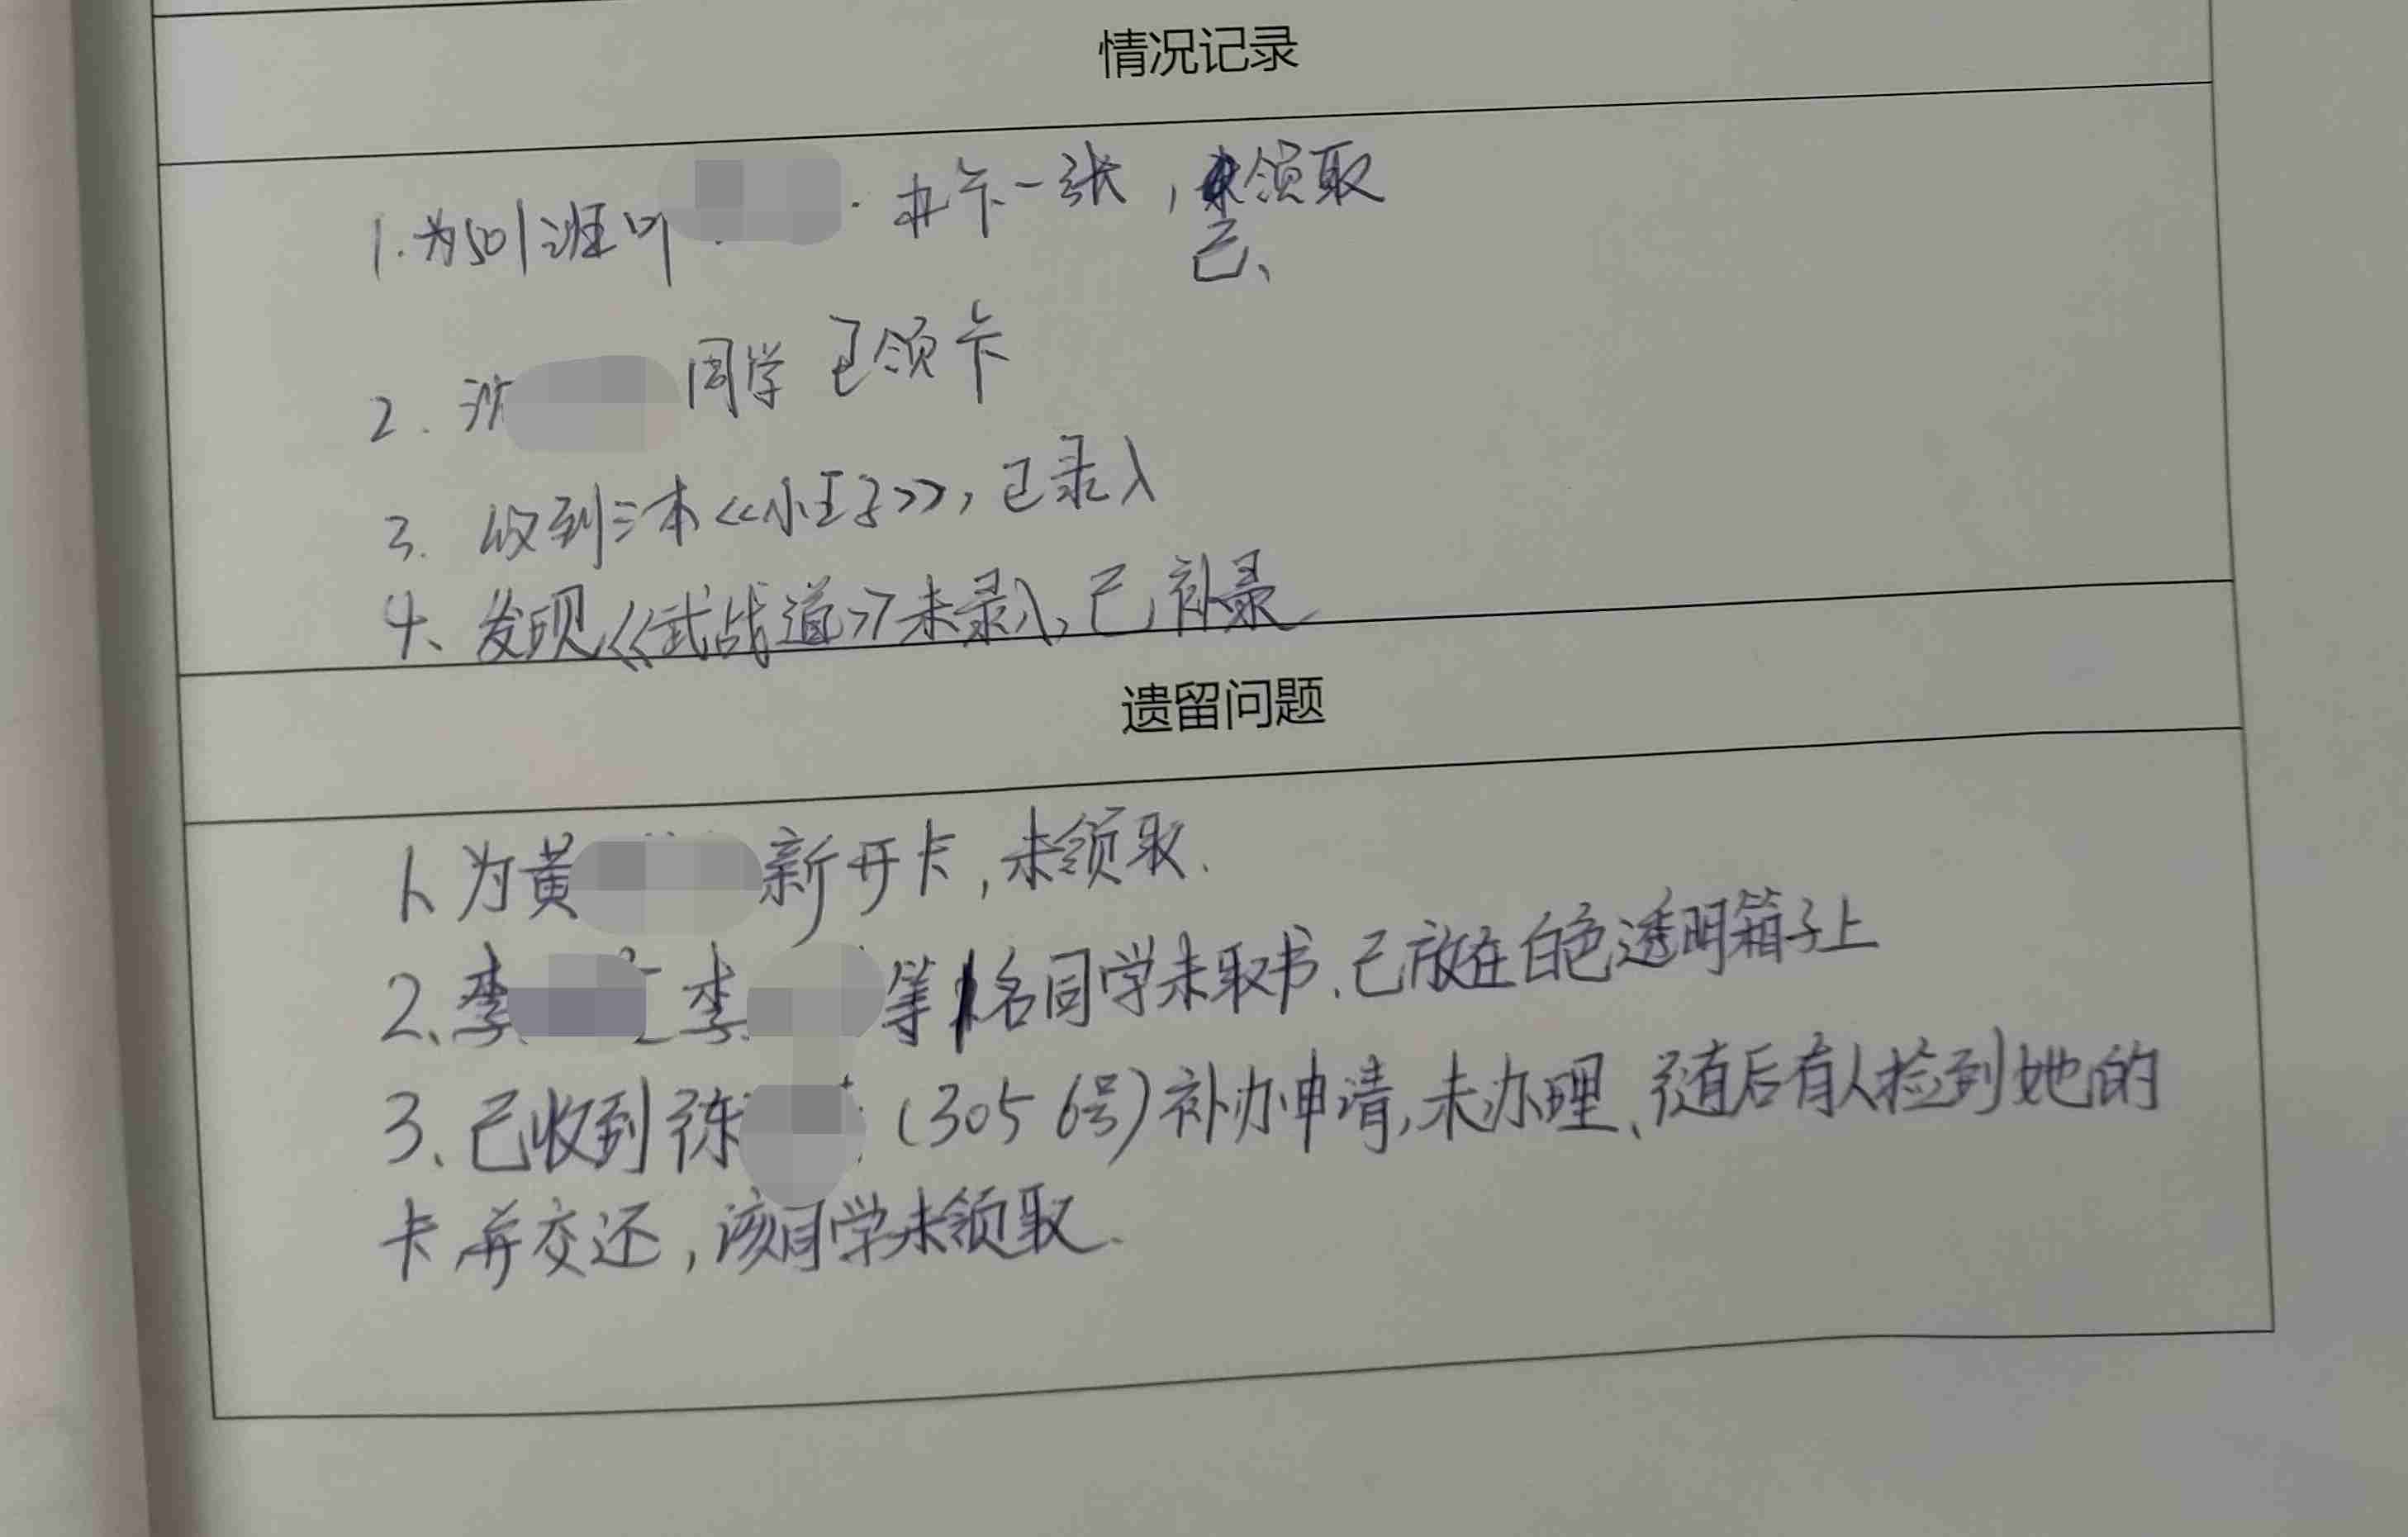 情况记录
1.为501班叶 办卡一张,已领取
2. 同学已领卡
3. 收到三本《小王子》,已录入
4、发现《武战道》未录入,已补录
遗留问题
1、为黄 新开卡,未领取.
2、李 李 等 名同学未取书、已放在白色透明箱子上
3、已收到陈 (305 6号)补办申请,未办理、随后有人捡到她的
卡并交还,该同学未领取.